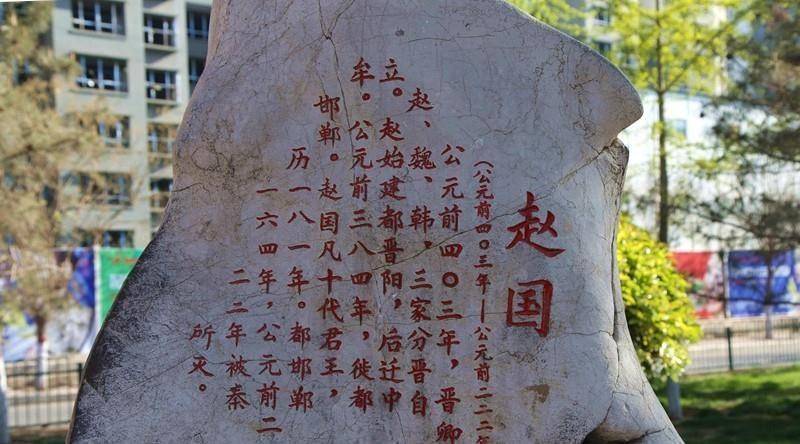 赵国
（公元前四〇三年—公元前二二二年
公元前四〇三年，晋卿
赵、魏、韩，三家分晋自
立。赵始建都晋阳，后迁中
牟。公元前三八四年，徙都
邯郸。赵国凡十代君王，
历一八一年。都邯郸
一六四年，公元前二
二二年被秦
所灭。